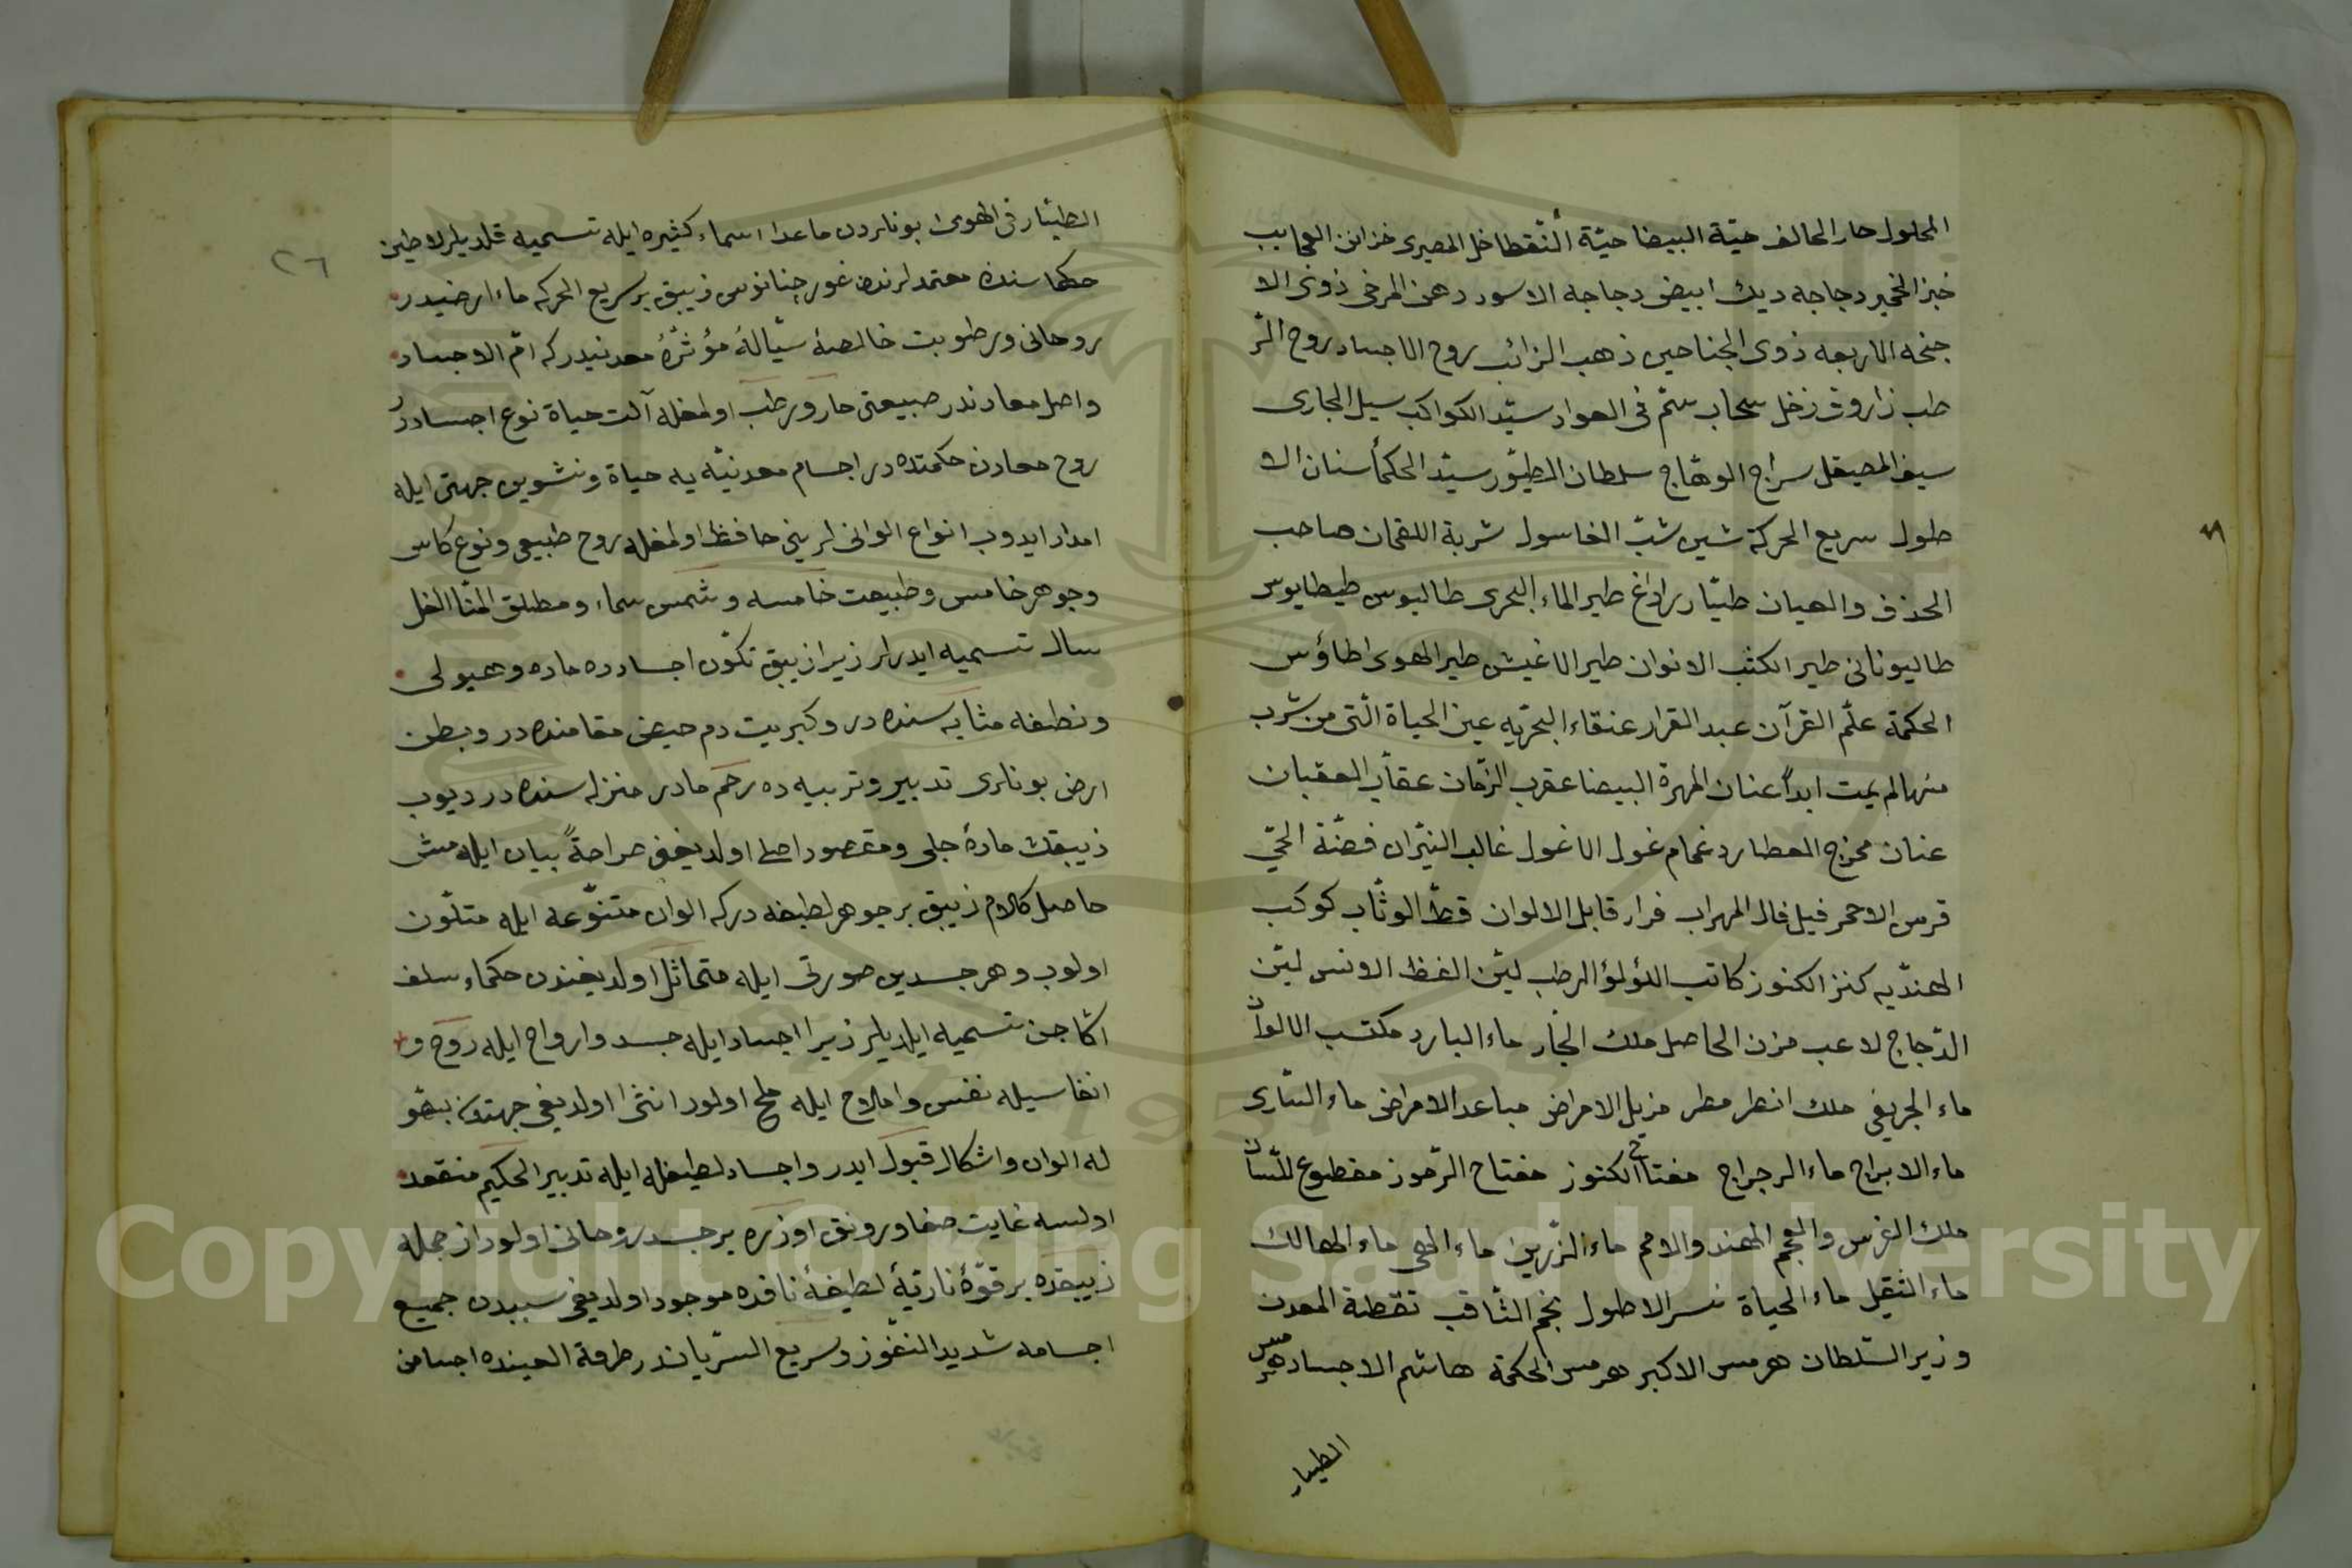 المحلول حار الحالف حيّة البيضا حيّة النّقطا خل المصيرى خزائن العجايب
خبز الخمير دجاجه ديك ابيض دجاجه الاسود دهن المرخى ذوى الا
جنحه الاربعه ذوى الجناحين ذهب الزائب روح الاجساد روح الر
طب زاروق زخل سحاب سمّ فى الهواد سيّد الكواكب سيل الجارى
سيف المصيقل سراج الوهّاج سلطان الطيّور سيّد الحكمأ سنان الا
طول سريع الحركة شين شبّ الغاسول شربة اللقمان صاحب
الحذف والهيان طيّار راداغ طير الماء البحرى طاليوس طيطايوس
طاليونانى طير الكثب الانوان طير الاغيش طير الهوى اطاؤس
الحكمة علّم القرآن عبد القرار عنقاء البحريّه عين الحياة الّتى من شرب
منها لم يمت ابداً عنان المهرة البيضا عقرب الزّمان عقاب العقبان
عنان مخرج العطارد غمام غول الاغول غالب النيّران فضّة الحىّ
قرس الاحمر فيل فال المهراب فرار قابل الالوان قطّ الوثّاب كوكب
الهنديّه كنز الكنوز كاتب اللؤلؤ الرطب ليّن الغظ الانس ليّن
الدّجاج لاعب مزن الحاصل ملك الجّار ماء البارد مكتسب الالوان
ماء الجريفى ملك انظر مطر مزيل الامراض مباعد الامراض ماء السّارى
ماء الابراج ماء الرجراج مفتاح الكنوز مفتاح الرّموز مقطوع للّسان
ملك الفرس والعجم الهند والامم ماء الزّرين ماء الهى ماء الهالك
ماء الثقيل ماء الحياة نسر الاطول نجم الثّاقب نقطة المعدن
وزير السّلطان هرمس الاكبر هرمس الحكمة هاشم الاجساد هرمس
الطيار
٢٦
الطيّار فى الهوى بونلردن ماعدا اسماء كثيره ايله تسميه قلديلر لاطين
حكماسنده معتمدلرندن غورجنانوس زيبق بر سريع الحركه ماء ارضيدر
روحانى ورطوبت خالصهٔ سيّالهٔ مؤثرهٔ معدنيدركه امّ الاجساد
واصل معادندر طبيعتى حار ورطب اولمغله آلت حياة نوع اجساددر
روح معادن حكمتده در اجسام معدنيّه يه حياة ونشوين جهتى ايله
امداد ايدوب انواع الوانى لرينى حافظ اولمغله روح طبيعى ونوع كاس
وجوهر خامس وطبيعت خامسه وشمس سماء ومطلق المثّا الخل
سال تسميه ايدرلر زيرا زيبق تكوّن اجسادده ماده وهيولى
ونطفه مثابه سنده در وكبريت دم حيض مقامنده در وبطن
ارض بونلرى تدبير وتربيه ده رحم مادر منزله سنده در ديوب
زيبقك مادهٔ جلى ومقصود اصلى اولديغن صراحةً بيان ايلمش
حاصل كلام زيبق بر جوهر لطيفه دركه الوان متنوّعه ايله متلّون
اولوب وهر جسدين صورتى ايله متماثل اولديغندن حكماء سلف
اكا جن تسميه ايلديلر زيرا اجساد ايله جسد وارواح ايله روح و
انفاسيله نفس واملاح ايله ملح اولور انثى اولديغى جهتدن بتقو
له الوان واشكال قبول ايدر واجساد لطيفه ايله تدبير الحكيم منقعد
اولسه غايت صفا ورونق اوزره بر جسد روحانى اولور از جمله
زيبقده بر قوّهٔ ناريّهٔ لطيفهٔ نافذه موجود اولديغى سببدن جميع
اجسامه شديد النفّوز وسريع السّرياندر طرفة العينده اجسامن